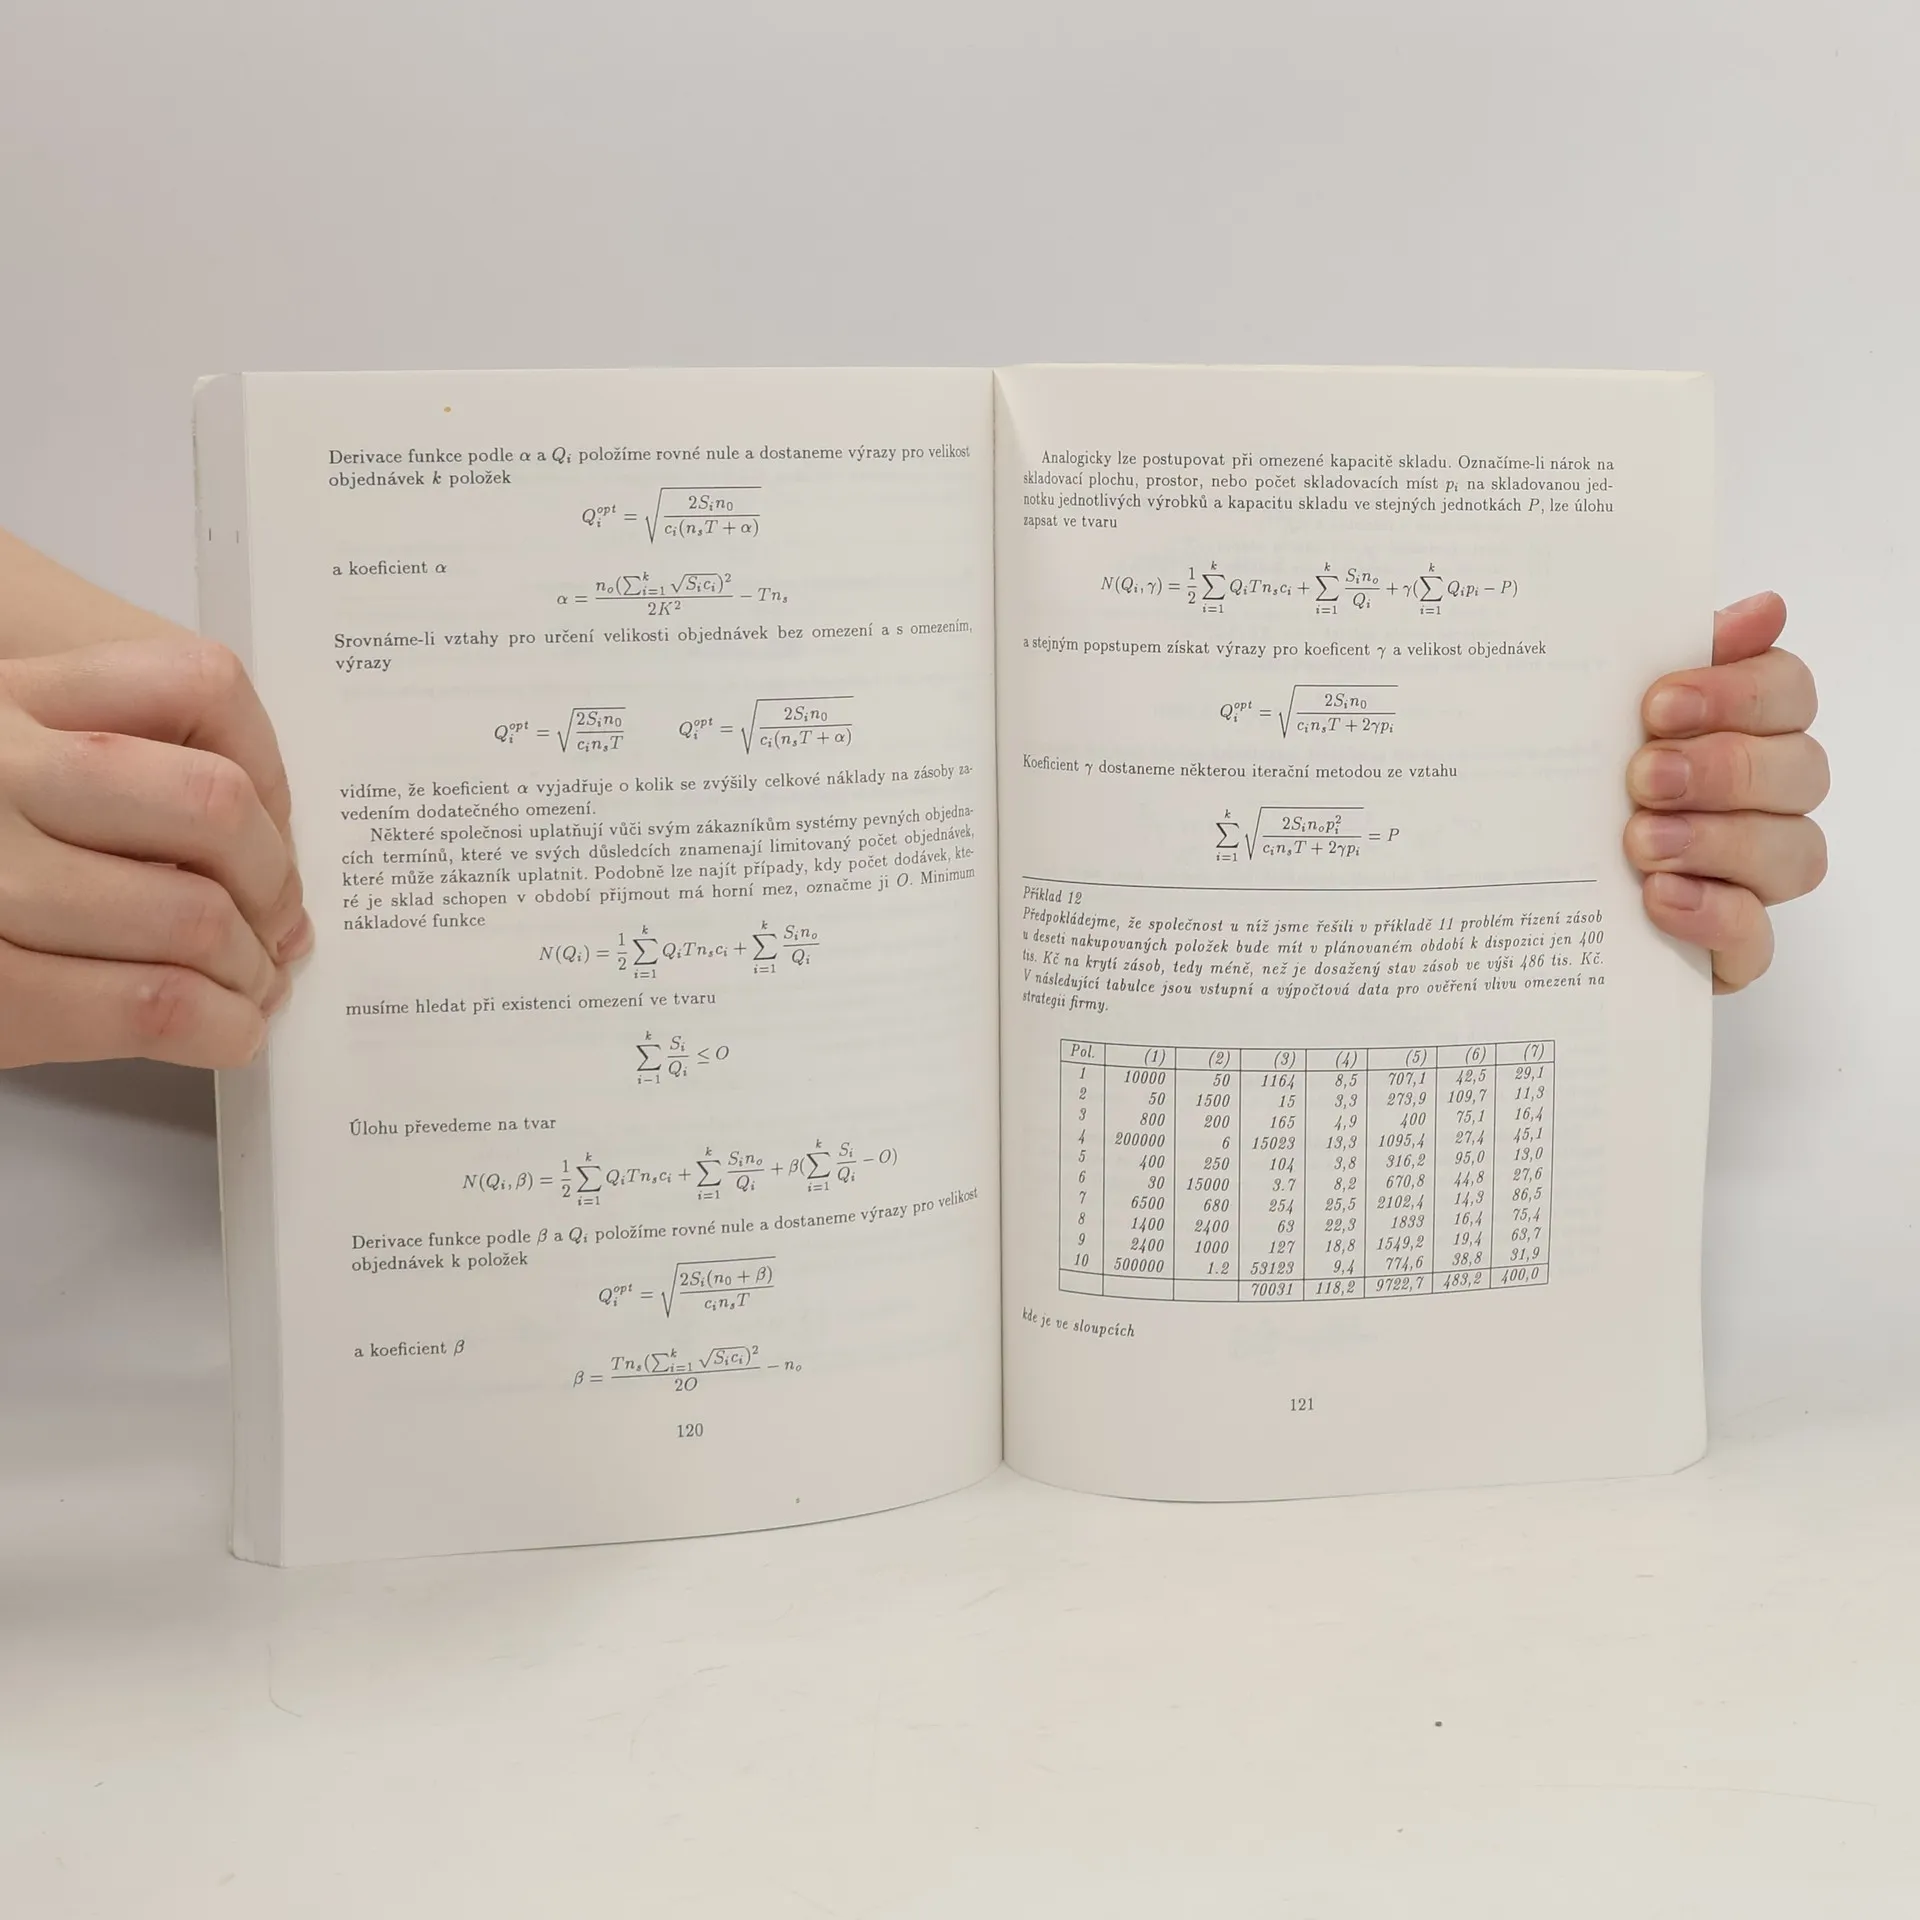 Derivace funkce podle α a Qᵢ položíme rovné nule a dostaneme výrazy pro velikost
objednávek k položek
Qᵢᵒᵖᵗ = √(2Sᵢn₀ / cᵢ(nₛT + α))
a koeficient α
α = nₒ(∑ᵢ₌₁ᵏ √(Sᵢcᵢ))² / 2K² − Tnₛ
Srovnáme-li vztahy pro určení velikosti objednávek bez omezení a s omezením,
výrazy
Qᵢᵒᵖᵗ = √(2Sᵢn₀ / cᵢnₛT) Qᵢᵒᵖᵗ = √(2Sᵢn₀ / cᵢ(nₛT + α))
vidíme, že koeficient α vyjadřuje o kolik se zvýšily celkové náklady na zásoby za-
vedením dodatečného omezení.
Některé společnosi uplatňují vůči svým zákazníkům systémy pevných objedna-
cích termínů, které ve svých důsledcích znamenají limitovaný počet objednávek,
které může zákazník uplatnit. Podobně lze najít případy, kdy počet dodávek, kte-
ré je sklad schopen v období přijmout má horní mez, označme ji O. Minimum
nákladové funkce
N(Qᵢ) = 1/2 ∑ᵢ₌₁ᵏ QᵢTnₛcᵢ + ∑ᵢ₌₁ᵏ Sᵢnₒ/Qᵢ
musíme hledat při existenci omezení ve tvaru
∑ᵢ₋₁ᵏ Sᵢ/Qᵢ ≤ O
Úlohu převedeme na tvar
N(Qᵢ, β) = 1/2 ∑ᵢ₌₁ᵏ QᵢTnₛcᵢ + ∑ᵢ₌₁ᵏ Sᵢnₒ/Qᵢ + β(∑ᵢ₌₁ᵏ Sᵢ/Qᵢ − O)
Derivace funkce podle β a Qᵢ položíme rovné nule a dostaneme výrazy pro velikost
objednávek k položek
Qᵢᵒᵖᵗ = √(2Sᵢ(n₀ + β) / cᵢnₛT)
a koeficient β
β = Tnₛ(∑ᵢ₌₁ᵏ √(Sᵢcᵢ))² / 2O − nₒ
120
Analogicky lze postupovat při omezené kapacitě skladu. Označíme-li nárok na
skladovací plochu, prostor, nebo počet skladovacích míst pᵢ na skladovanou jed-
notku jednotlivých výrobků a kapacitu skladu ve stejných jednotkách P, lze úlohu
zapsat ve tvaru
N(Qᵢ, γ) = 1/2 ∑ᵢ₌₁ᵏ QᵢTnₛcᵢ + ∑ᵢ₌₁ᵏ Sᵢnₒ/Qᵢ + γ(∑ᵢ₌₁ᵏ Qᵢpᵢ − P)
a stejným popstupem získat výrazy pro koeficent γ a velikost objednávek
Qᵢᵒᵖᵗ = √(2Sᵢn₀ / cᵢnₛT + 2γpᵢ)
Koeficient γ dostaneme některou iterační metodou ze vztahu
∑ᵢ₌₁ᵏ √(2Sᵢnₒpᵢ² / cᵢnₛT + 2γpᵢ) = P
Příklad 12
Předpokládejme, že společnost u níž jsme řešili v příkladě 11 problém řízení zásob
u deseti nakupovaných položek bude mít v plánovaném období k dispozici jen 400
tis. Kč na krytí zásob, tedy méně, než je dosažený stav zásob ve výši 486 tis. Kč.
V následující tabulce jsou vstupní a výpočtová data pro ověření vlivu omezení na
strategii firmy.
Pol. (1) (2) (3) (4) (5) (6) (7)
1 10000 50 1164 8,5 707,1 42,5 29,1
2 50 1500 15 3,3 273,9 109,7 11,3
3 800 200 165 4,9 400 75,1 16,4
4 200000 6 15023 13,3 1095,4 27,4 45,1
5 400 250 104 3,8 316,2 95,0 13,0
6 30 15000 3.7 8,2 670,8 44,8 27,6
7 6500 680 254 25,5 2102,4 14,3 86,5
8 1400 2400 63 22,3 1833 16,4 75,4
9 2400 1000 127 18,8 1549,2 19,4 63,7
10 500000 1.2 53123 9,4 774,6 38,8 31,9
70031 118,2 9722,7 483,2 400,0
kde je ve sloupcích
121